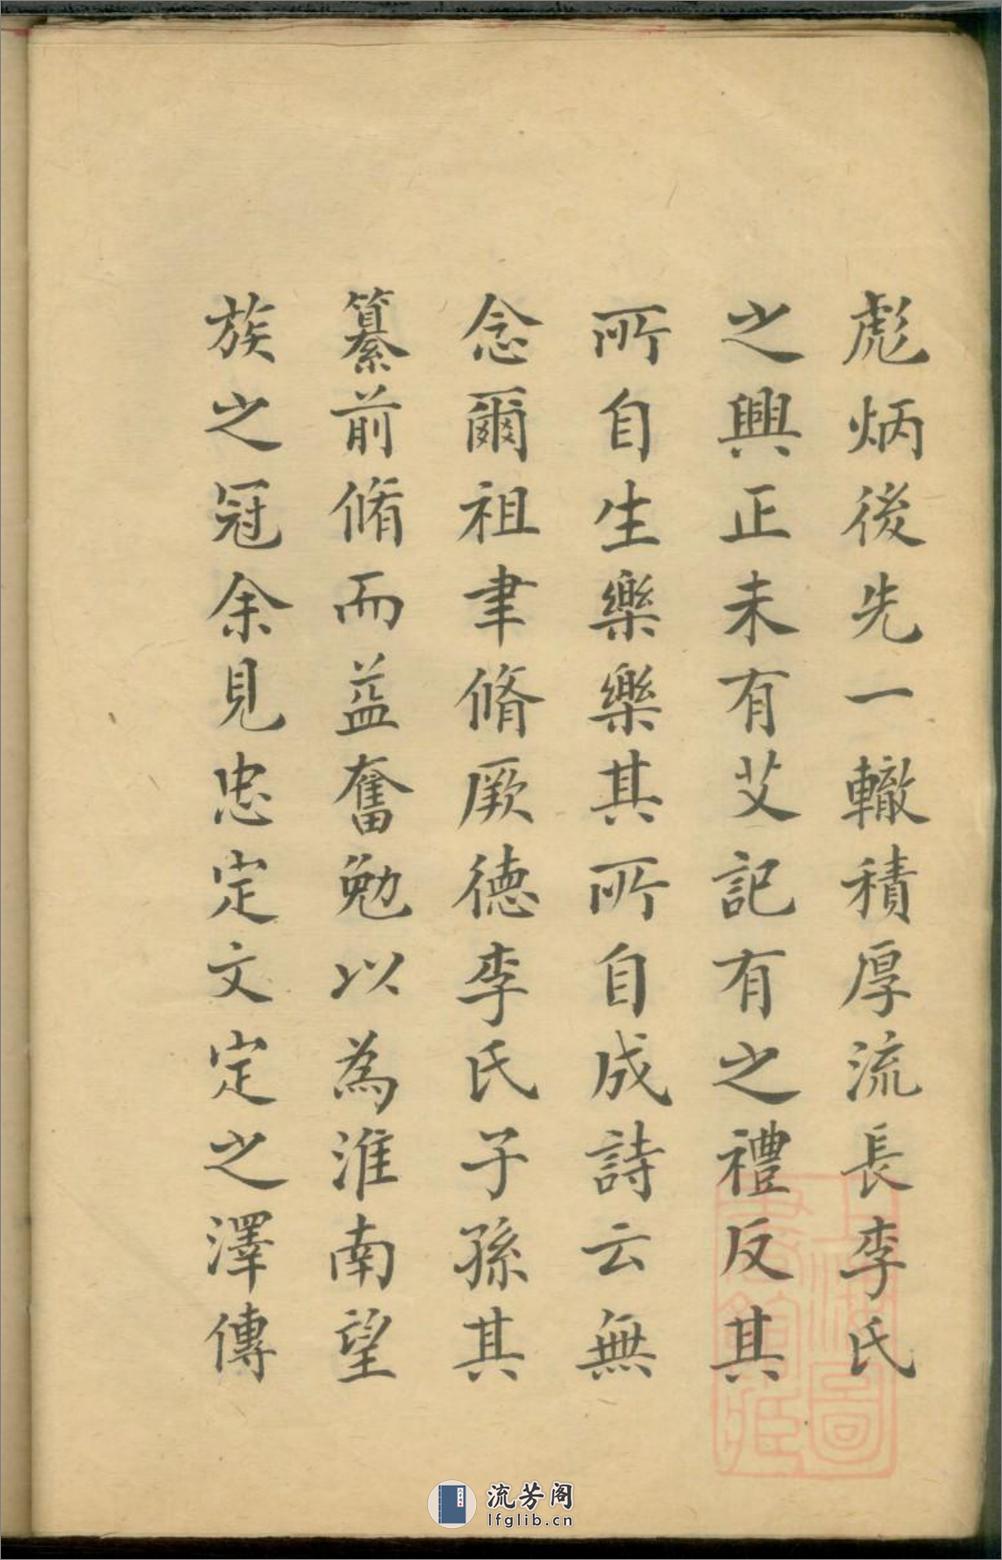 彪炳後先一轍積厚流長李氏
之興正未有艾記有之禮反其
所自生樂樂其所自成詩云無
念爾祖聿脩厥德李氏子孫其
纂前脩而益奮勉以為淮南望
族之冠余見忠定文定之澤傳
上海圖書館藏
流芳阁
lfglib.cn